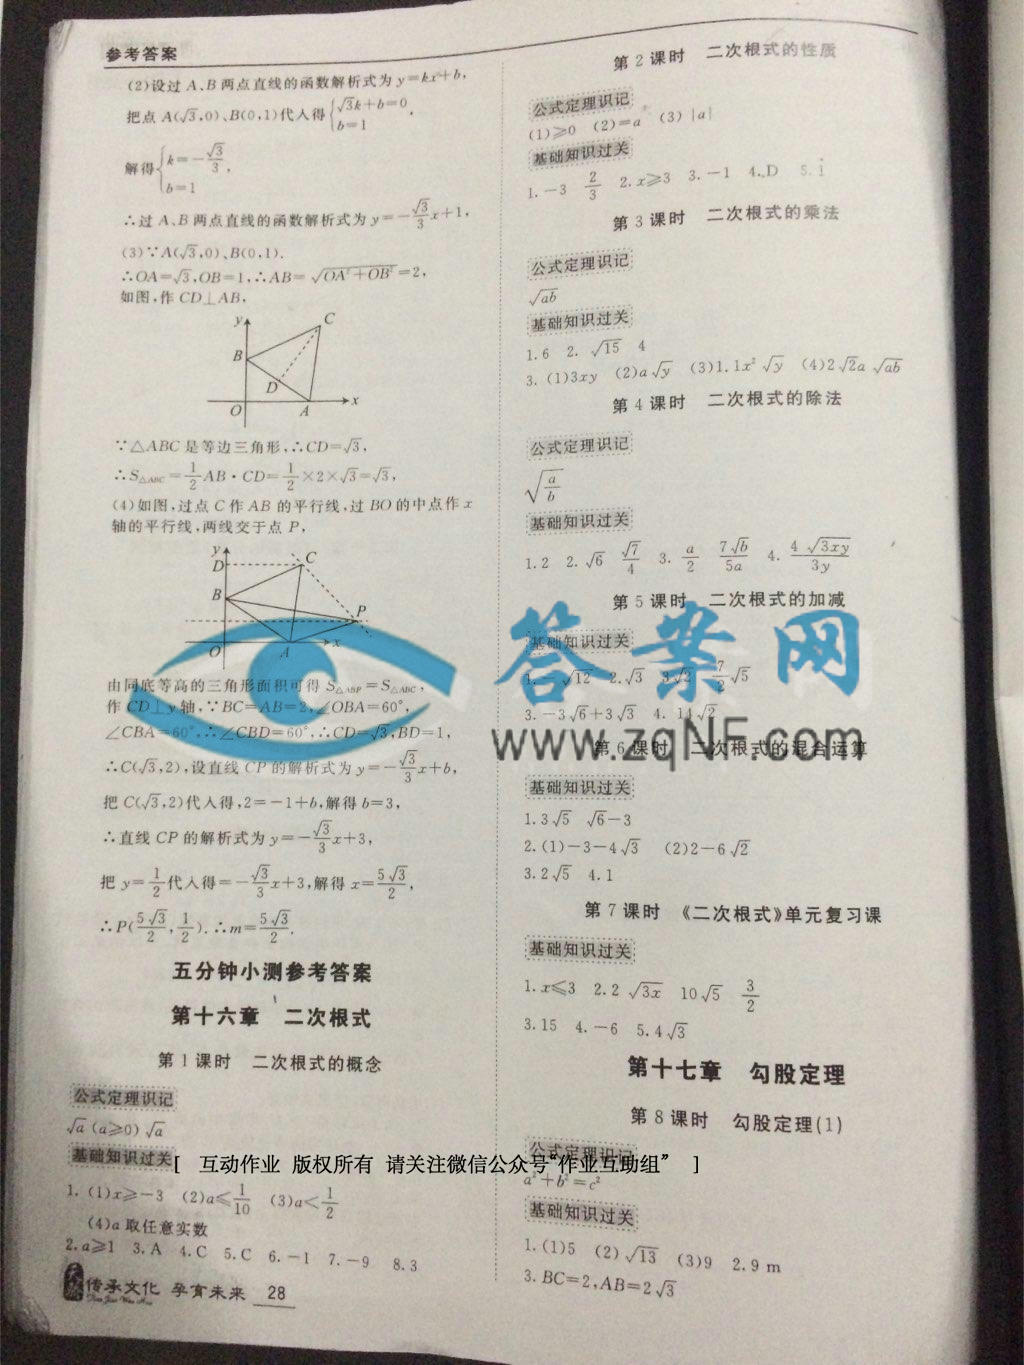 参考答案
(2)设过 A、B 两点直线的函数解析式为 y=kx+b,
把点 A(√3,0)、B(0,1)代入得{√3k+b=0
b=1 ,
解得{k=-√3/3,
b=1
∴过 A、B 两点直线的函数解析式为 y=-√3/3x+1,
(3)∵A(√3,0)、B(0,1).
∴OA=√3,OB=1,∴AB=√(OA²+OB²)=2,
如图,作 CD⊥AB,
y C
B
D
O A x
∵△ABC 是等边三角形,∴CD=√3,
∴S△ABC=1/2AB·CD=1/2×2×√3=√3,
(4)如图,过点 C 作 AB 的平行线,过 BO 的中点作 x
轴的平行线,两线交于点 P,
y
D C
B
P
O A x
由同底等高的三角形面积可得 S△ABP=S△ABC,
作 CD⊥y 轴,∵BC=AB=2,∠OBA=60°,
∠CBA=60°,∴∠CBD=60°,∴CD=√3,BD=1,
∴C(√3,2),设直线 CP 的解析式为 y=-√3/3x+b,
把 C(√3,2)代入得,2=-1+b,解得 b=3,
∴直线 CP 的解析式为 y=-√3/3x+3,
把 y=1/2代入得=-√3/3x+3,解得 x=5√3/2,
∴P(5√3/2,1/2).∴m=5√3/2.
五分钟小测参考答案
第十六章 二次根式
第1课时 二次根式的概念
公式定理识记
√a (a≥0) √a
基础知识过关
1.(1)x≥-3 (2)a≤1/10 (3)a<1/2
(4)a 取任意实数
2.a≥1 3.A 4.C 5.C 6.-1 7.-9 8.3
传承文化 孕育未来 28
第2课时 二次根式的性质
公式定理识记
(1)≥0 (2)=a (3)|a|
基础知识过关
1.-3 2/3 2.x≥3 3.-1 4.D 5.1
第3课时 二次根式的乘法
公式定理识记
√ab
基础知识过关
1.6 2.√15 4
3.(1)3xy (2)a√y (3)1.1x²√y (4)2√2a√ab
第4课时 二次根式的除法
公式定理识记
√(a/b)
基础知识过关
1.2 2.√6 √7/4 3.a/2 7√b/5a 4.4√3xy/3y
第5课时 二次根式的加减
基础知识过关
√12 2.√3 3√2 7/2√5
3.-3√6+3√3 4.14√2
第6课时 二次根式的混合运算
基础知识过关
1.3√5 √6-3
2.(1)-3-4√3 (2)2-6√2
3.2√5 4.1
第7课时 《二次根式》单元复习课
基础知识过关
1.x≤3 2.2√3x 10√5 3/2
3.15 4.-6 5.4√3
第十七章 勾股定理
第8课时 勾股定理(1)
公式定理识记
a²+b²=c²
基础知识过关
1.(1)5 (2)√13 (3)9 2.9 m
3.BC=2,AB=2√3
答案网
www.zqNF.com
[ 互动作业 版权所有 请关注微信公众号“作业互助组” ]